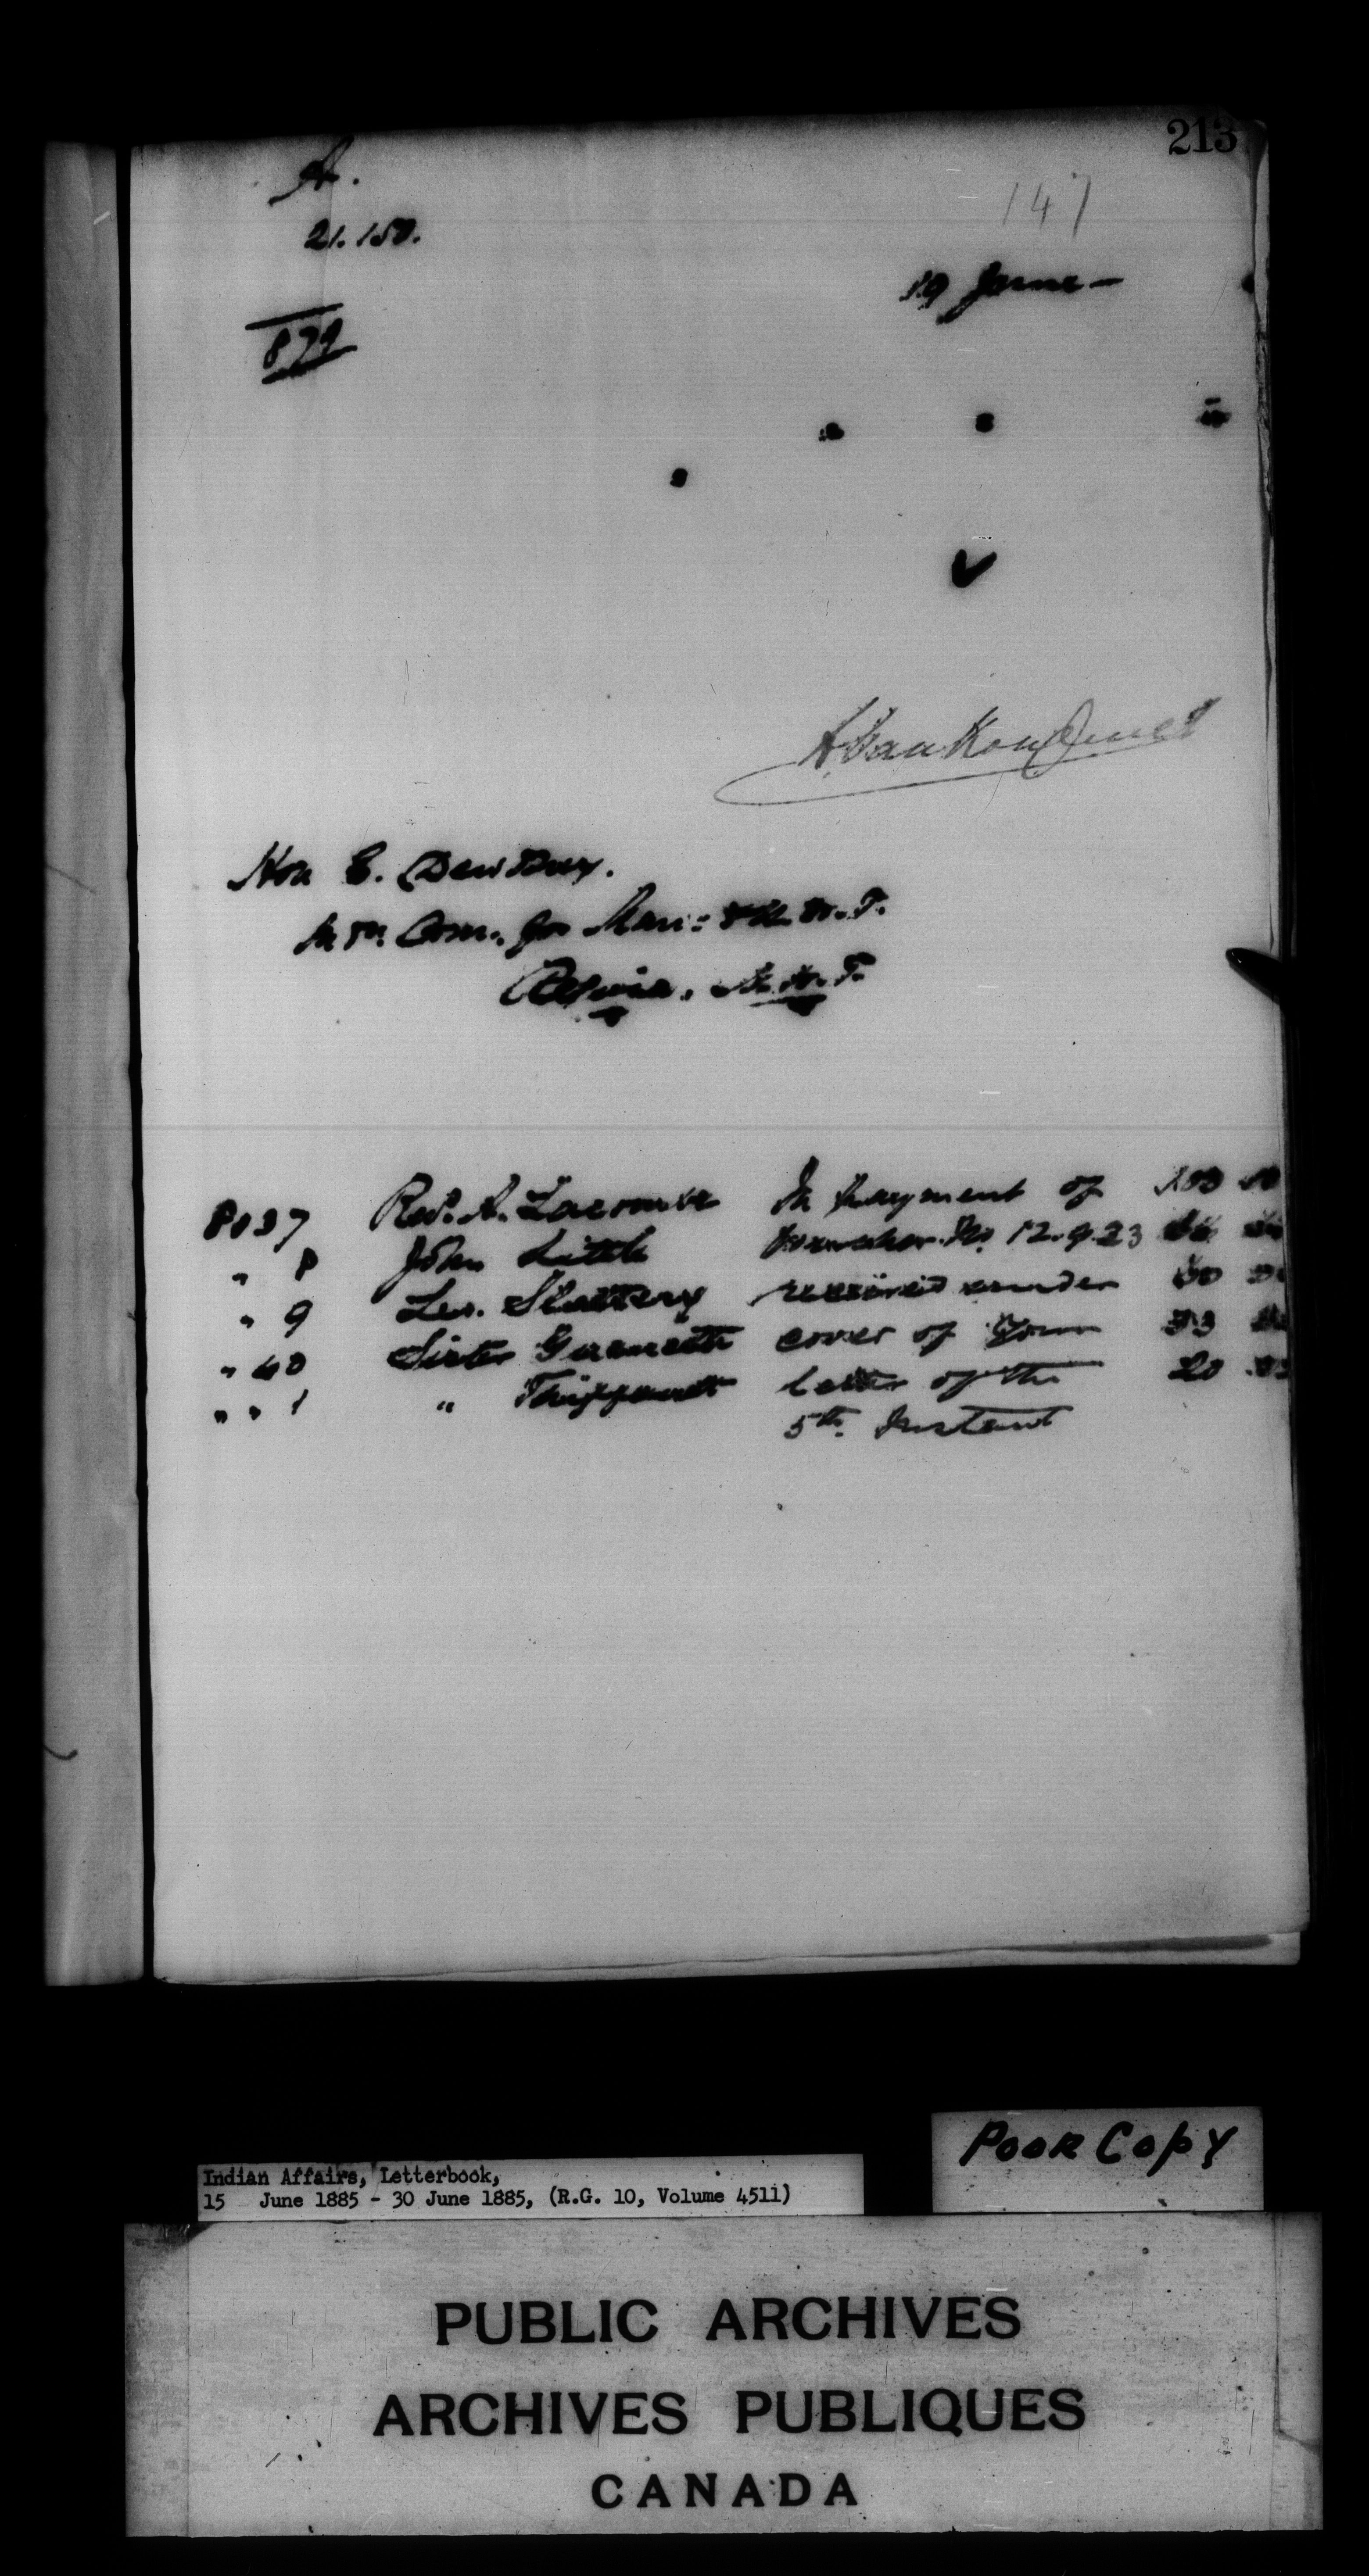 213
147
A.
21.150.
19 June -
879
L. VanKoughnet
Hon E. Dewdney.
In Com. for Man: & N. W. T.
Regina, N. W. T.
8037 Rev. A. Lacombe In payment of 100 00
" 8 John Little voucher No. 12.9.23
" 9 Leo. Slattery received under 50
" 40 Sister Guenette cover of your 33
" " 1 " letter of the 20
5th Instant
Poor Copy
Indian Affairs, Letterbook,
15 June 1885 - 30 June 1885, (R.G. 10, Volume 4511)
PUBLIC ARCHIVES
ARCHIVES PUBLIQUES
CANADA